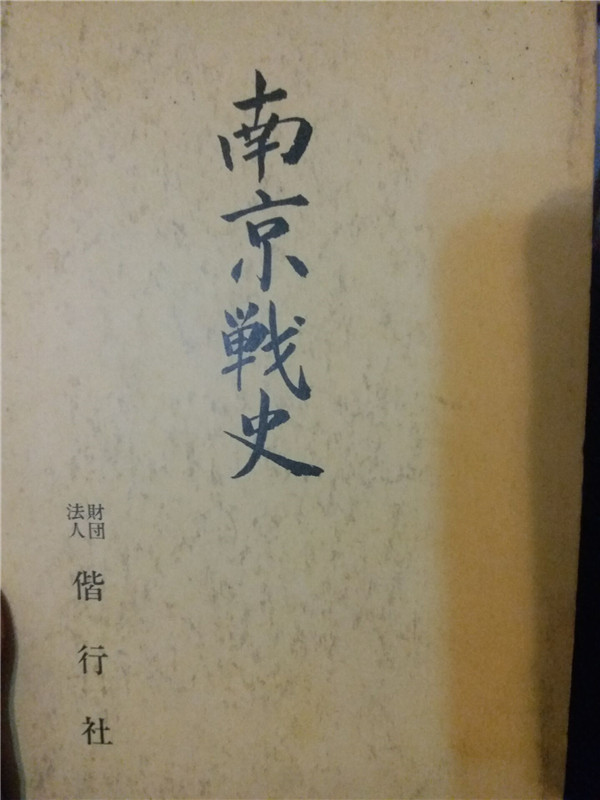 南京戦史
財団
法人
偕行社